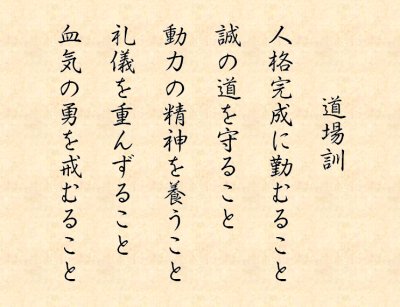 道場訓
人格完成に勤むること
誠の道を守ること
動力の精神を養うこと
礼儀を重んずること
血気の勇を戒むること